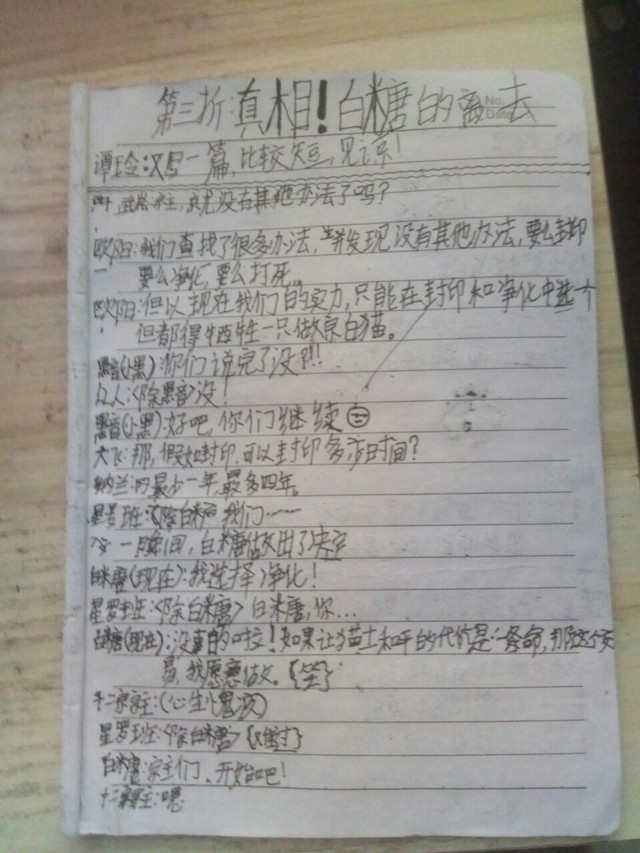 第三折:真相!白糖的离去
No.
Date
谭玲:又写一篇,比较短,见谅!
宗主,就没有其他办法了吗?
欧阳:我们查找了很多办法,并发现没有其他办法,要么封印
要么净化,要么打死。
欧阳:但以现在我们的实力,只能在封印和净化中选一个
但都得牺牲一只做京白猫。
黑音(小黑):你们说完了没?!!
众人:《除黑音》没!
黑音(小黑):好吧,你们继续
大飞:那,假如封印,可以封印多少时间?
纳兰:最少一年,最多四年。
星罗班:《除白糖》我们……
一瞬间,白糖做出了决定
白糖(现在):我选择净化!
星罗班:《除白糖》白糖,你…
白糖(现在):没事的啦!如果让猫土和平的代价是一条命,那这个交
易,我愿意做。{笑}
十二宗主:(心生愧疚)
星罗班:《除白糖》{难过}
白糖:宗主们、开始吧!
十二宗主:嗯